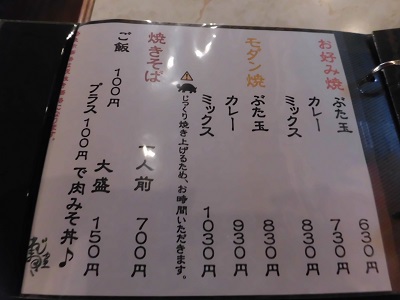 お好み焼
ぶた玉 630円
カレー 730円
ミックス 830円
モダン焼
ぶた玉 830円
カレー 930円
ミックス 1030円
じっくり焼き上げるため、お時間いただきます。
焼きそば
一人前 700円
大盛 150円
ご飯 100円
プラス100円で肉みそ丼♪